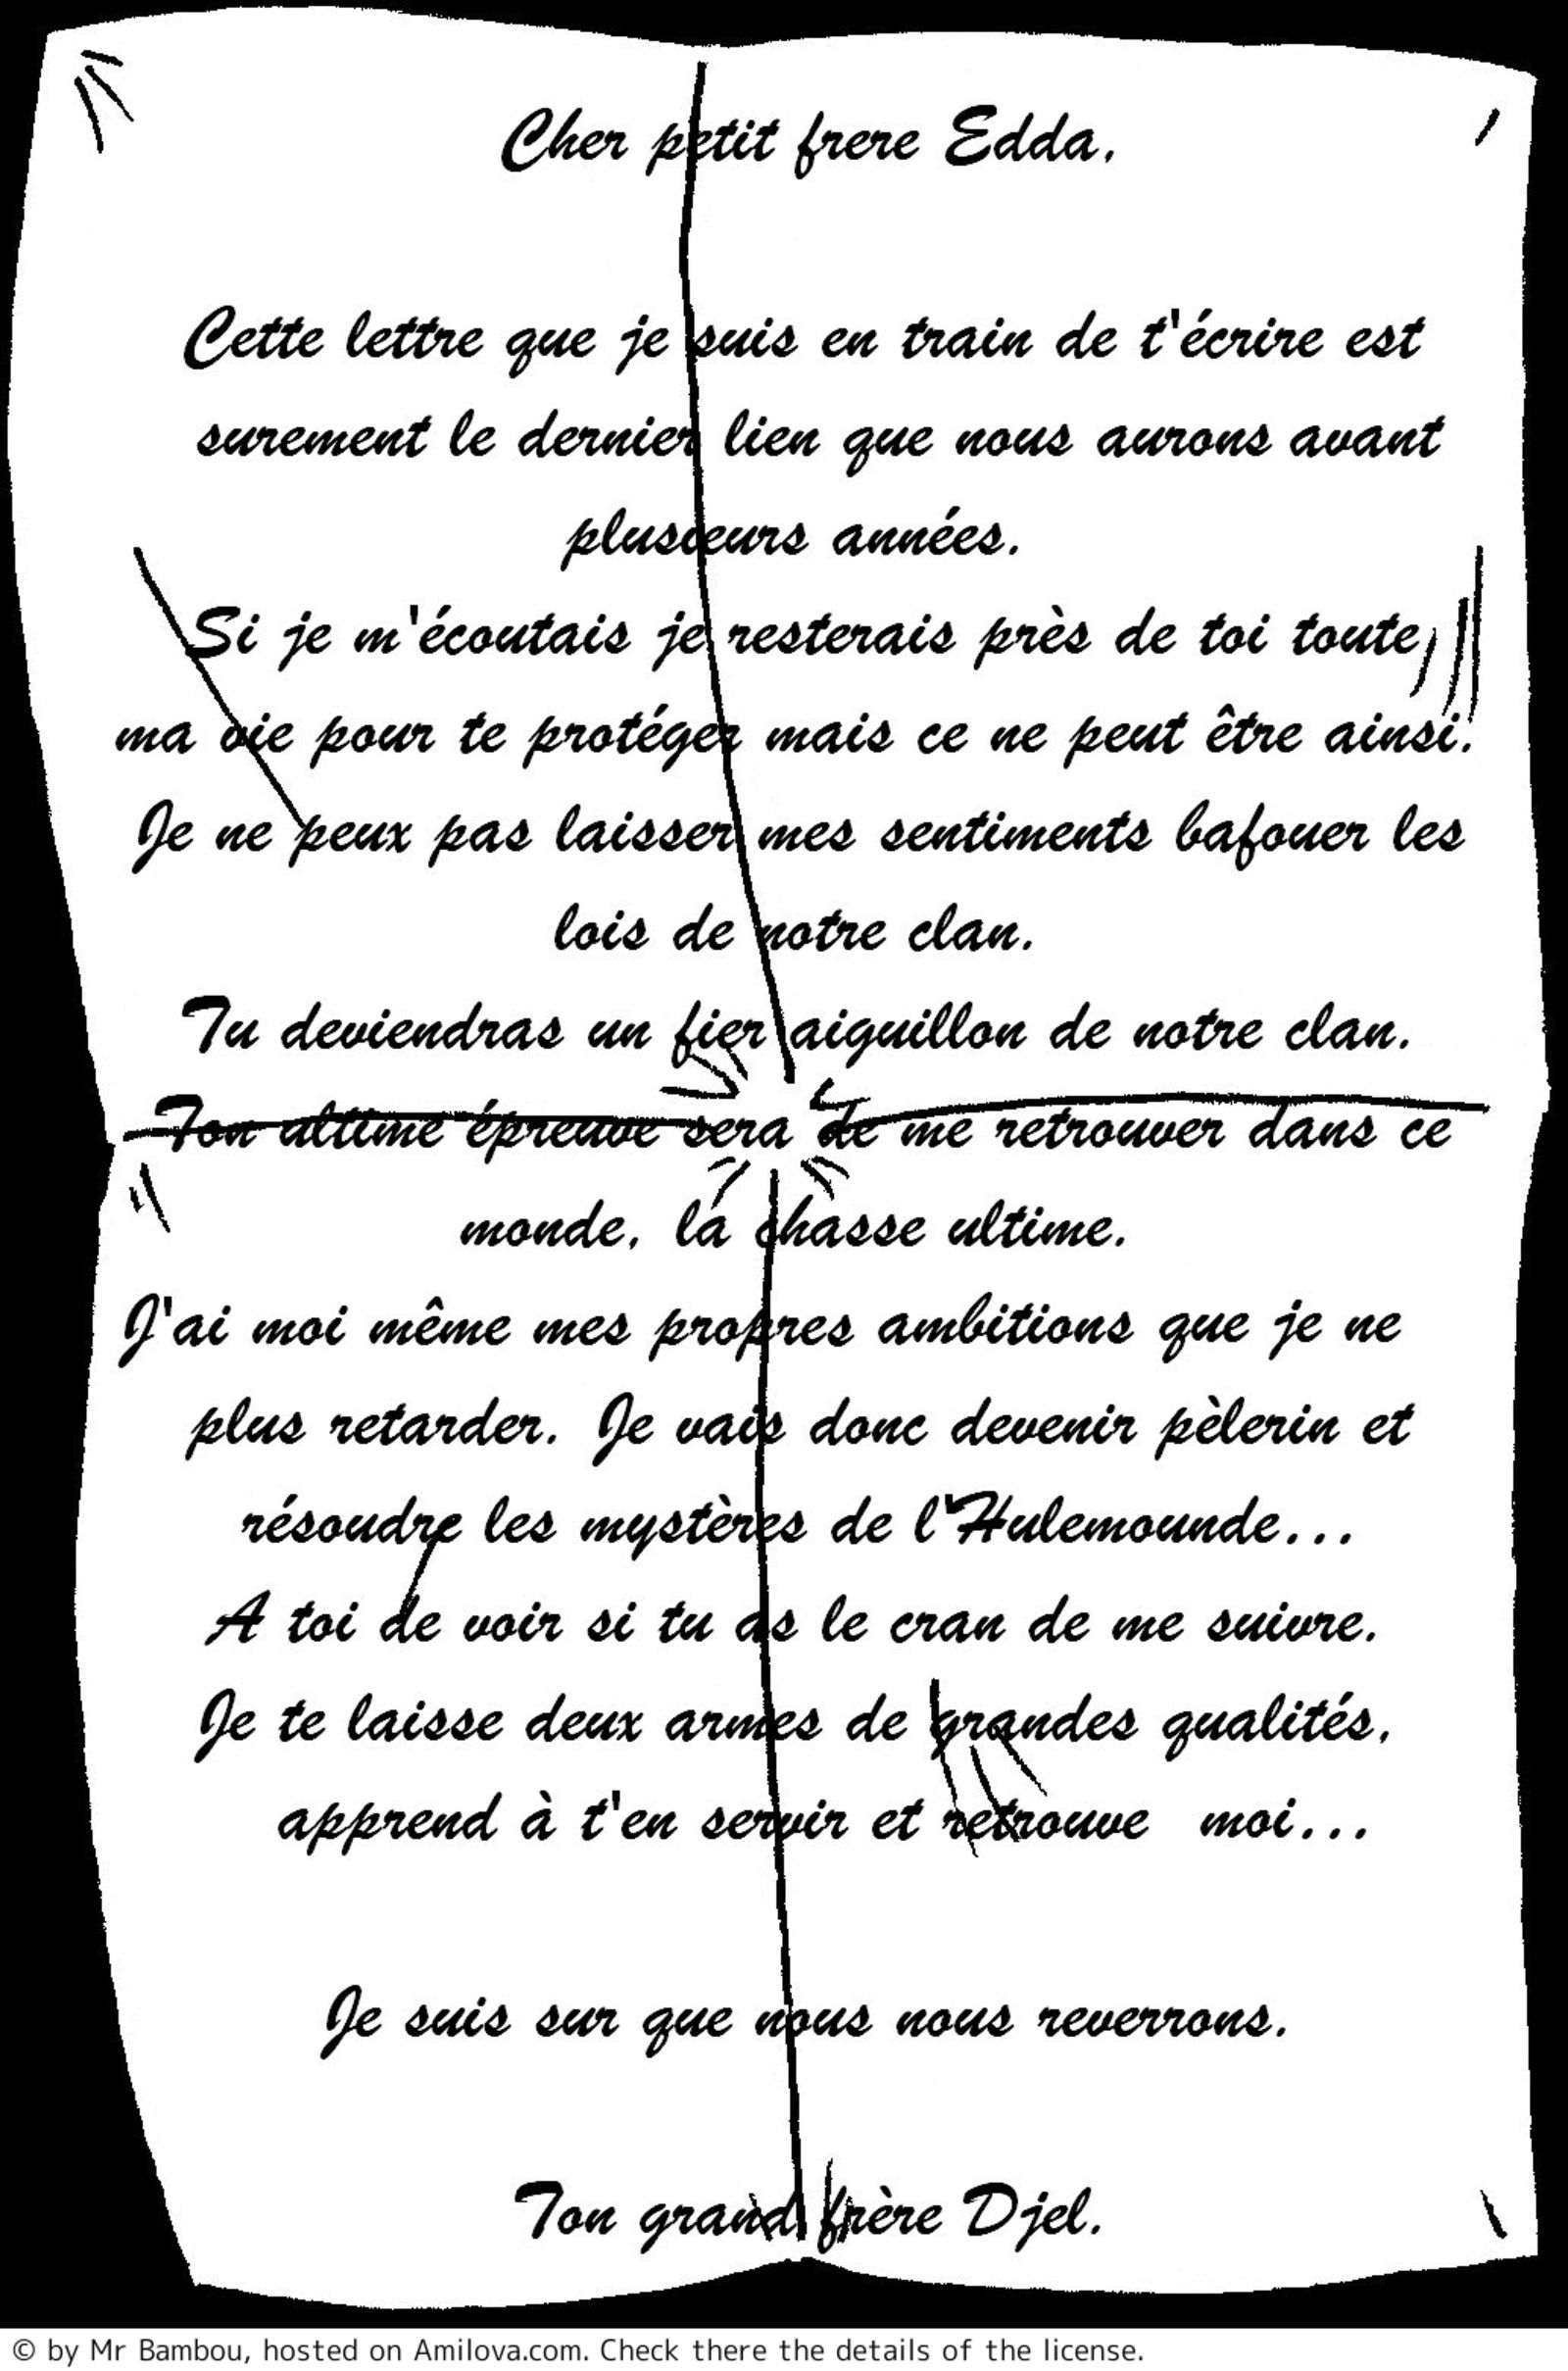 Cher petit frere Edda,
Cette lettre que je suis en train de t'écrire est
surement le dernier lien que nous aurons avant
plusieurs années.
Si je m'écoutais je resterais près de toi toute
ma vie pour te protéger mais ce ne peut être ainsi.
Je ne peux pas laisser mes sentiments bafouer les
lois de notre clan.
Tu deviendras un fier aiguillon de notre clan.
Ton ultime épreuve sera de me retrouver dans ce
monde, la chasse ultime.
J'ai moi même mes propres ambitions que je ne
plus retarder. Je vais donc devenir pèlerin et
résoudre les mystères de l'Hulemounde...
A toi de voir si tu as le cran de me suivre.
Je te laisse deux armes de grandes qualités,
apprend à t'en servir et retrouve moi...
Je suis sur que nous nous reverrons.
Ton grand frère Djel.
© by Mr Bambou, hosted on Amilova.com. Check there the details of the license.